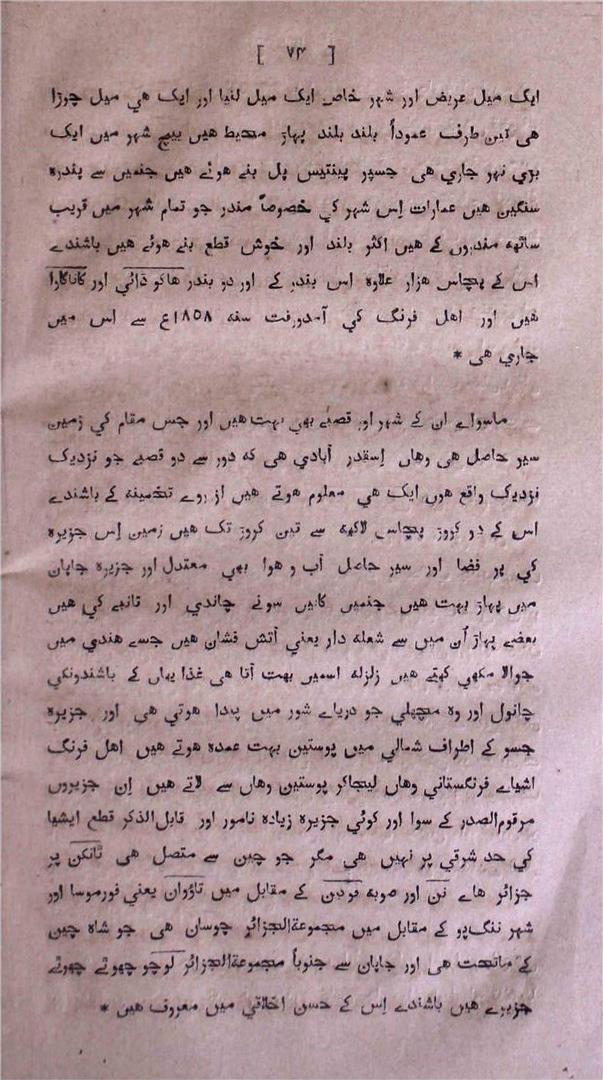 [ ٧٣ ]
ایک میل عریض اور شہر خاص ایک میل لنبا اور ایک هي میل چوڑا
هی تین طرف عموداً بلند بلند پہاڑ محیط هیں بیچ شہر میں ایک
بڑي نہر جاري هی جسپر پینتیس پل بنے هوئے هیں جنمیں سے پندرہ
سنگین هیں عمارات اِس شہر کي خصوصاً مندر جو تمام شہر میں قریب
ساتھہ مندروں کے هیں اکثر بلند اور خوش قطع بنے هوئے هیں باشندے
اس کے پچاس هزار علاوہ اس بندر کے اور دو بندر هاکو دائي اور کاناگارا
هیں اور اهل فرنگ کي آمدورفت سنہ ١٨٥٨ع سے اس میں
جاري هی *
ماسواے ان کے شہر اور قصبے بھي بہت هیں اور جس مقام کي زمین
سیر حاصل هی وهاں اِسقدر آبادي هی کہ دور سے دو قصبے جو نزدیک
نزدیک واقع هوں ایک هي معلوم هوتے هیں از روے تخمینہ کے باشندے
اس کے دو کروڑ پچاس لاکھہ سے تین کروڑ تک هیں زمین اِس جزیرہ
کي پر فضا اور سیر حاصل آب و هوا بھي معتدل اور جزیرہ جاپان
میں پہاڑ بہت هیں جنمیں کانیں سونے چاندي اور تانبے کي هیں
بعضے پہاڑ اُن میں سے شعلہ دار یعني آتش فشان هیں جسے هندي میں
جوالا مکھي کہتے هیں زلزلہ اسمیں بہت آتا هی غذا یہاں کے باشندونکي
چانول اور وہ مچھلي جو دریاے شور میں پیدا هوتي هی اور جزیرہ
جسو کے اطراف شمالي میں پوستین بہت عمدہ هوتے هیں اهل فرنگ
اشیاے فرنگستاني وهاں لیجاکر پوستین وهاں سے لاتے هیں اِن جزیروں
مرقوم‌الصدر کے سوا اور کوئي جزیرہ زیادہ نامور اور قابل‌الذکر قطع ایشیا
کي حد شرقي پر نہیں هی مگر جو چین سے متصل هی ٹانکن پر
جزائر هاے نن اور صوبہ فوکین کے مقابل میں تاؤوان یعني فورموسا اور
شہر ننگ‌پو کے مقابل میں مجموعة‌الجزائر چوسان هی جو شاہ چین
کے ماتحت هی اور جاپان سے جنوباً مجموعة‌الجزائر لوچو چھوٹے چھوٹے
جزیرے هیں باشندے اِس کے حسن اخلاقي میں معروف هیں *